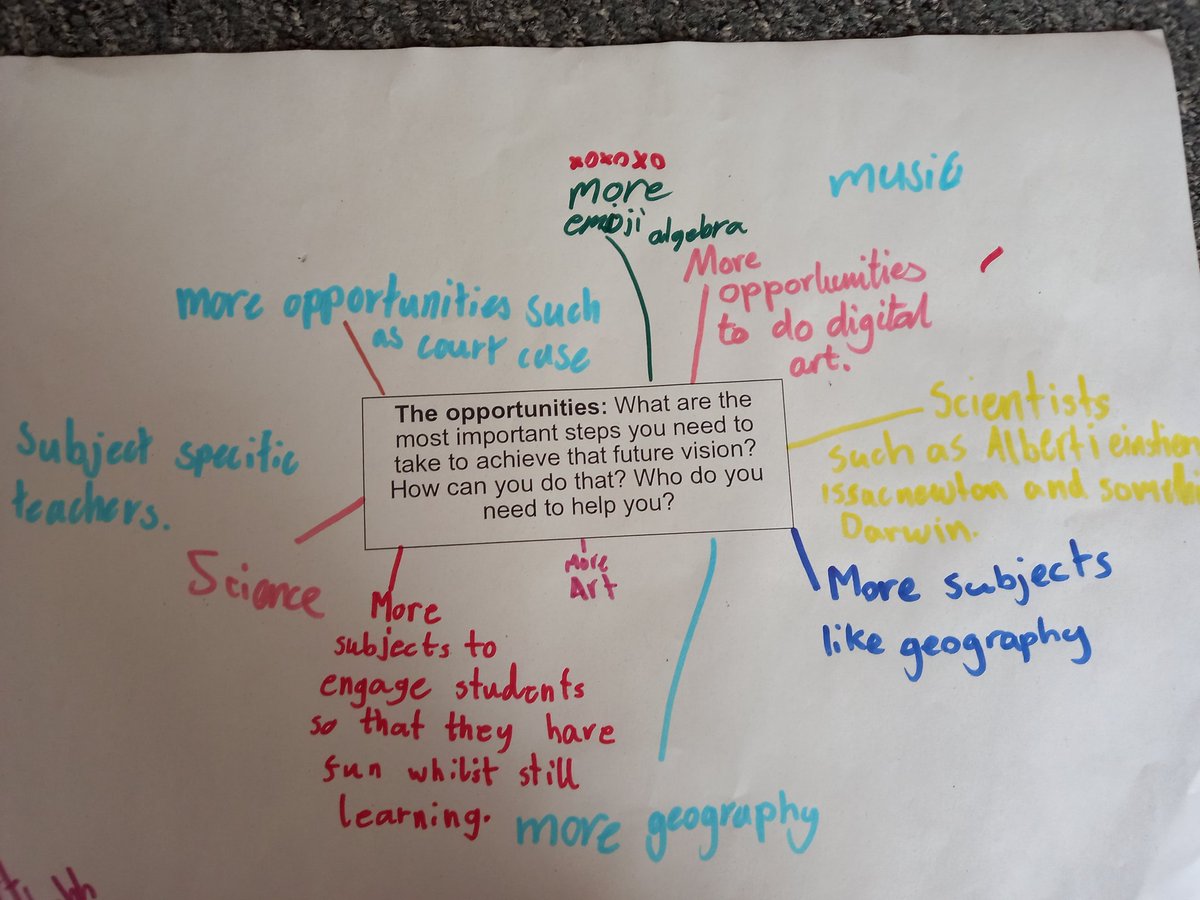 xoxoxo
more
emoji algebra
music
more opportunities such
as court case
More
opportunities
to do digital
art.
The opportunities: What are the
most important steps you need to
take to achieve that future vision?
How can you do that? Who do you
need to help you?
Scientists
such as Alberti einstien
issacnewton and
Darwin.
Subject specific
teachers.
Science
More
Art
More subjects
like geography
More
subjects to
engage students
so that they have
fun whilst still
learning.
more geography